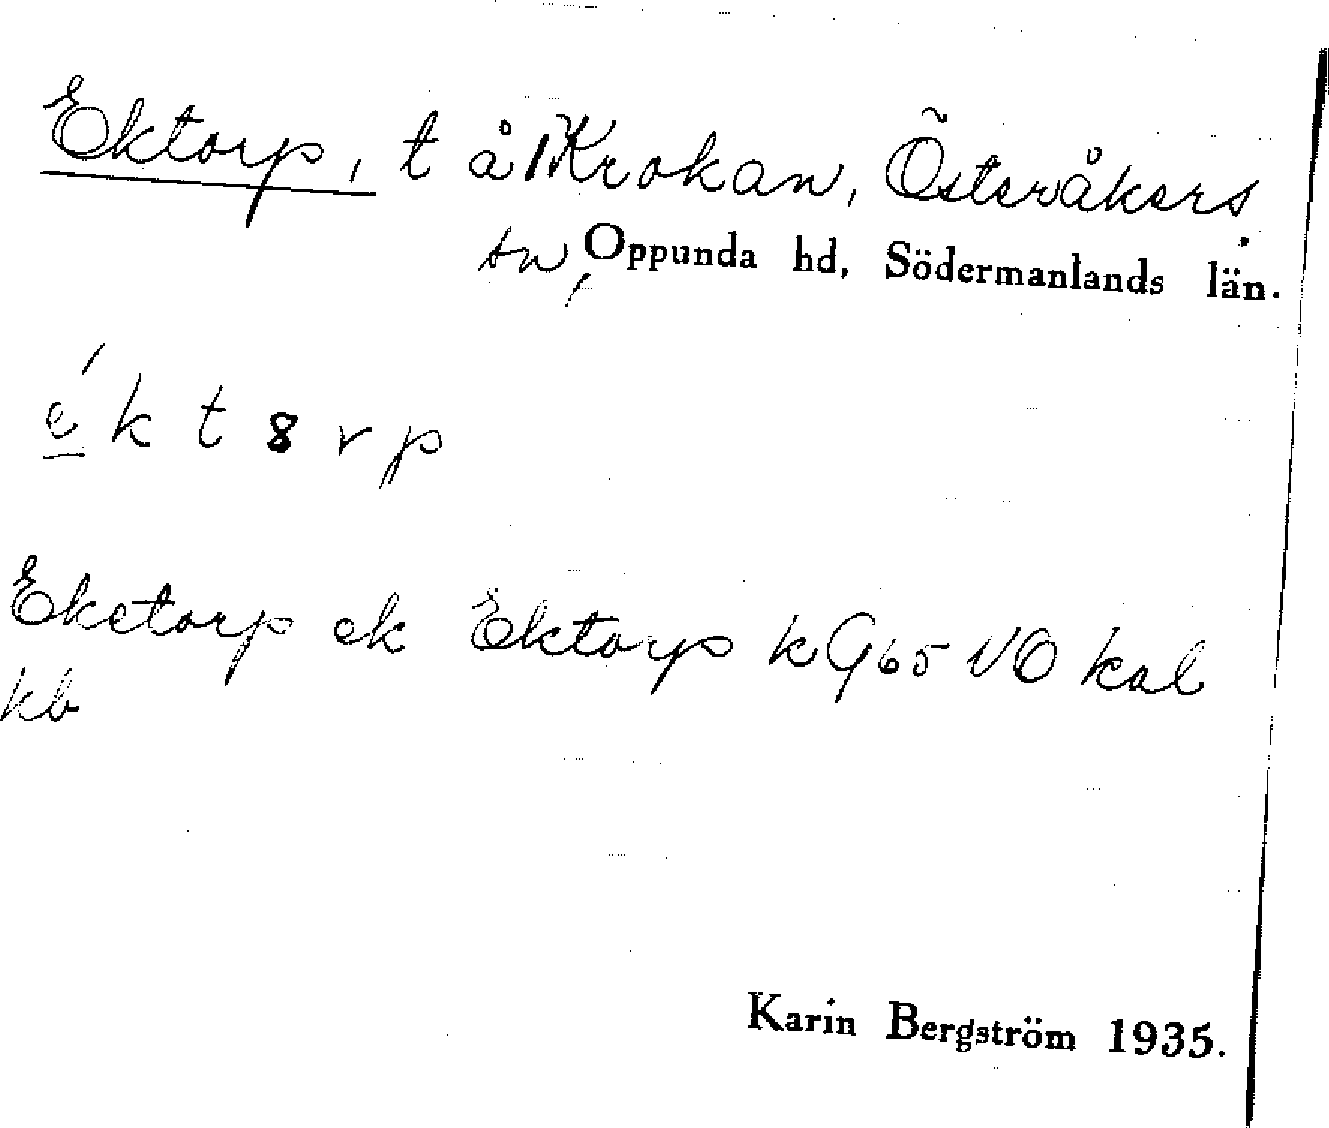 Ektorp, t å Krokan, Österåkers
sn, Oppunda hd, Södermanlands län.
é k t 8 r p
Eketorp ek Ektorp k G65 VO kal
kb
Karin Bergström 1935.